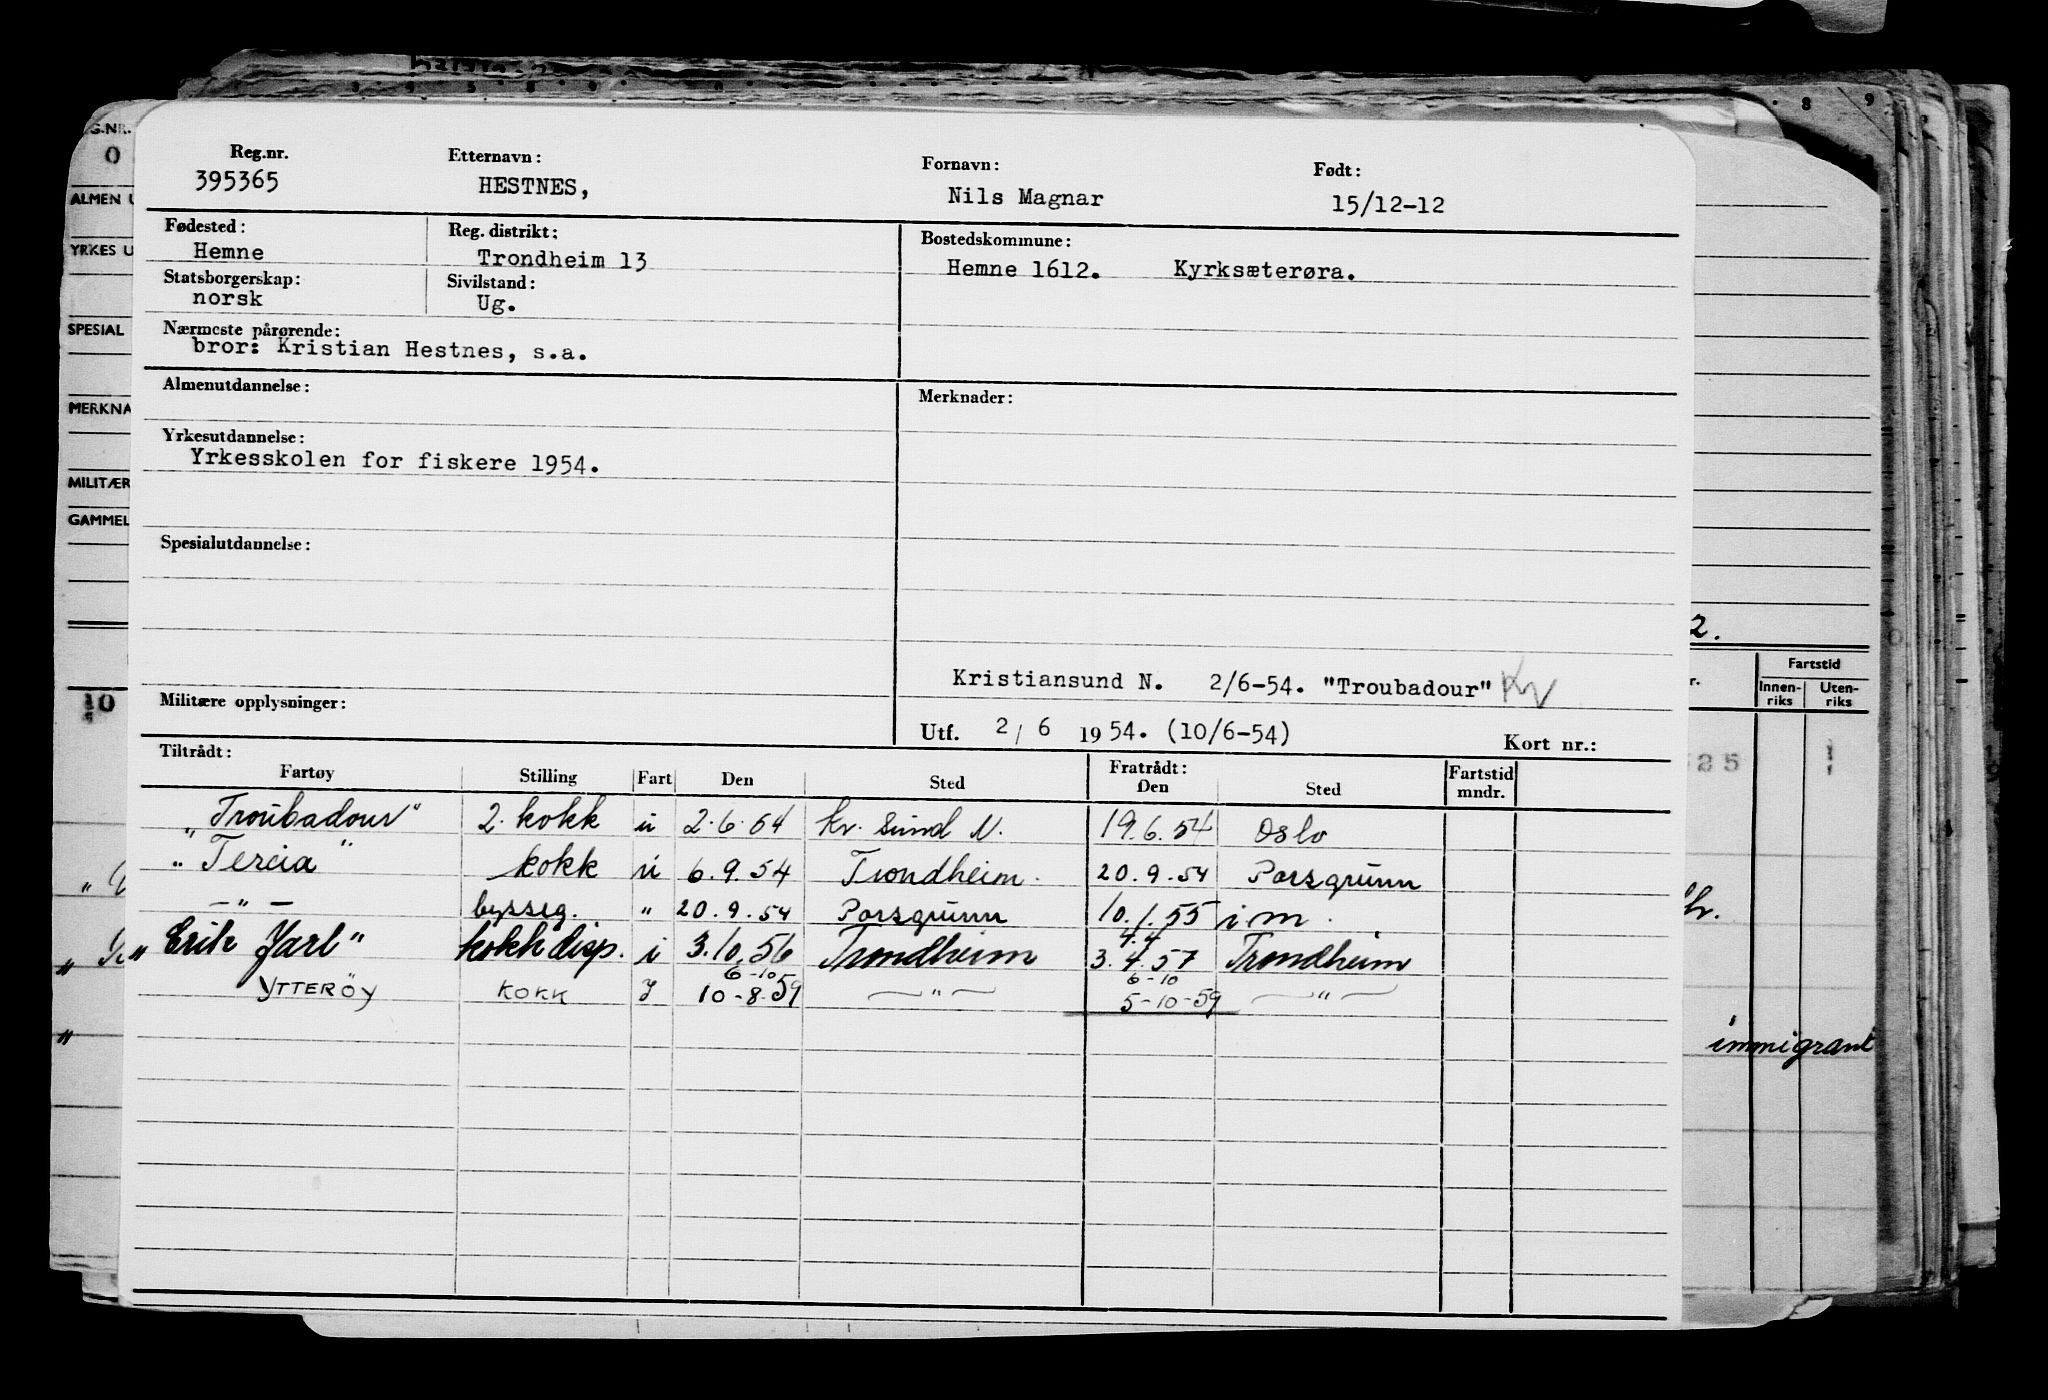 Reg.nr. Etternavn: Fornavn: Født:
395365 HESTNES, Nils Magnar 15/12-12
Fødested: Reg. distrikt: Bostedskommune:
Hemne Trondheim 13 Hemne 1612. Kyrksæterøra.
Statsborgerskap: Sivilstand:
norsk Ug.
Nærmeste pårørende:
bror: Kristian Hestnes, s.a.
Almenutdannelse: Merknader:
Yrkesutdannelse:
Yrkesskolen for fiskere 1954.
Spesialutdannelse:
Kristiansund N. 2/6-54. "Troubadour" Kr
Militære opplysninger:
Utf. 2/6 1954. (10/6-54) Kort nr.:
Tiltrådt: Fratrådt:
Fartøy Stilling Fart Den Sted Den Sted Fartstid mndr.
"Troubadour" 2. kokk u 2.6.54 Kr. sund N. 19.6.54 Oslo
"Tereia" kokk u 6.9.54 Trondheim. 20.9.54 Porsgrunn
—"— bysseg. " 20.9.54 Porsgrunn 10.1.55 i m.
4.4
"Erik Jarl" kokk disp. i 3.10.56 Trondheim 3.4.57 Trondheim
6-10 6-10
YTTERÖY KOKK J 10-8-59 —"— 5-10-59 —"—
G.NR.
0
ALMEN U
YRKES U
SPESIAL
MERKNA
MILITÆR
GAMMEL
10
8 9
2.
Fartstid
Innen-riks Uten-riks
25
immigrant